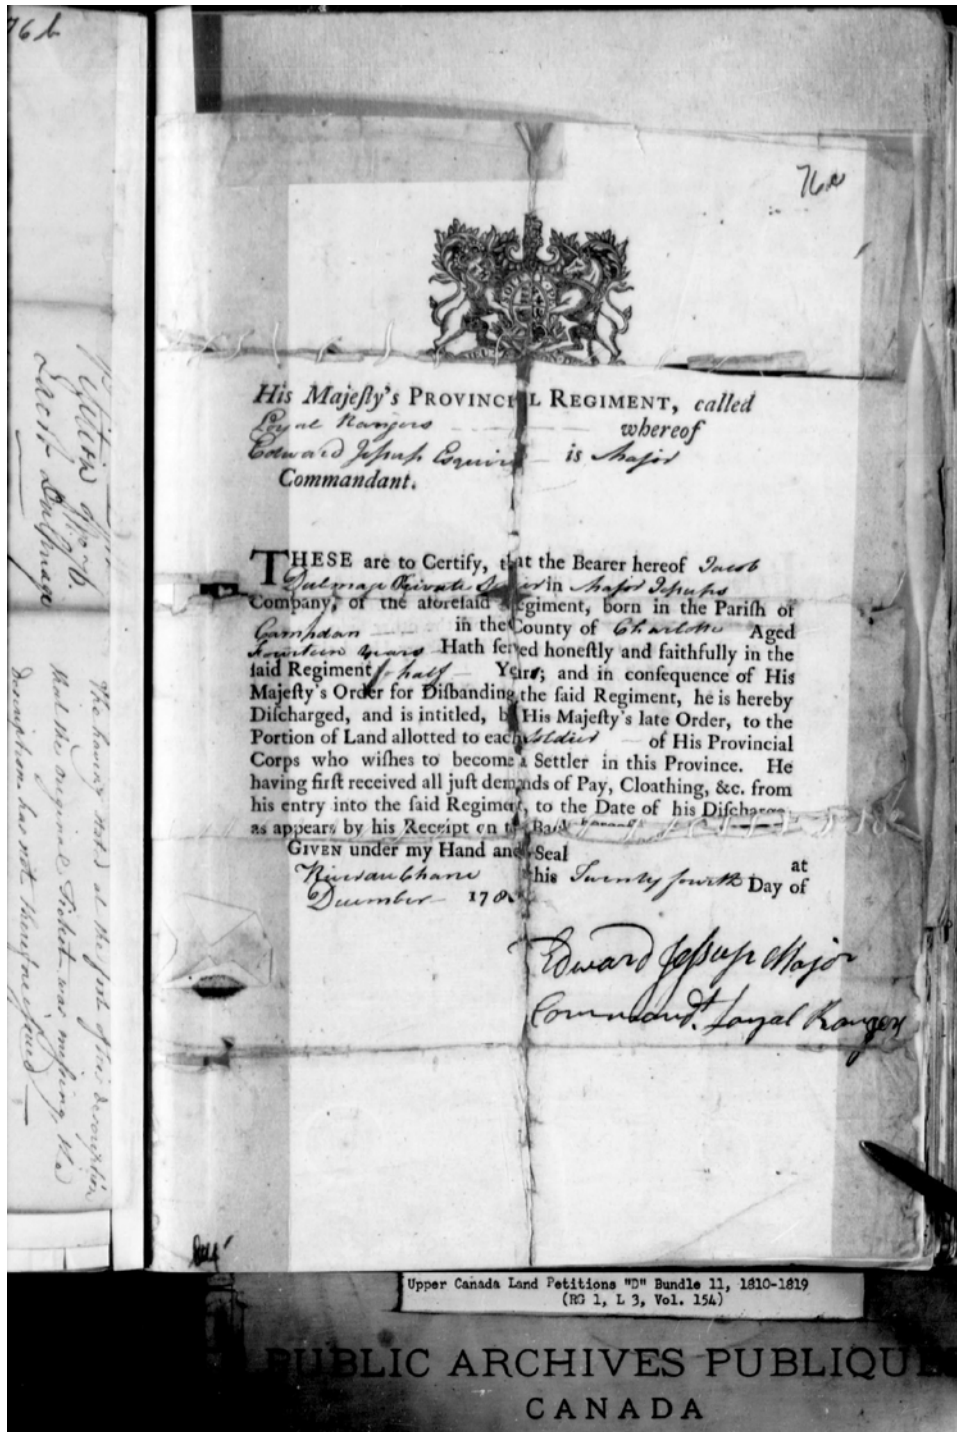 76b
Petition of
Lacist Dulmage
The having noted at the foot of his description
that the original Ticket was missing, the
description has not therefore joined
76a
His Majeſty's PROVINCIAL REGIMENT, called
Loyal Rangers whereof
Edward Jeſsup Esquire is Major
Commandant.
THESE are to Certify, that the Bearer hereof Jacob
Dulmage Private in Major Jeſsups
Company, of the aforeſaid Regiment, born in the Pariſh of
Campdan in the County of Charlotte Aged
Fourteen Years Hath ſerved honeſtly and faithfully in the
ſaid Regiment half Years; and in conſequence of His
Majeſty's Order for Diſbanding the ſaid Regiment, he is hereby
Diſcharged, and is intitled, by His Majeſty's late Order, to the
Portion of Land allotted to each Soldier of His Provincial
Corps who wiſhes to become a Settler in this Province. He
having firſt received all juſt demands of Pay, Cloathing, &c. from
his entry into the ſaid Regiment, to the Date of his Diſcharge
as appears by his Receipt on the Back
GIVEN under my Hand and Seal at
Riverduchane this Twenty fourth Day of
December 178
Edward Jeſsup Major
Commandt. Loyal Rangers
Upper Canada Land Petitions "D" Bundle 11, 1810-1819
(RG 1, L 3, Vol. 154)
PUBLIC ARCHIVES PUBLIQUE
CANADA